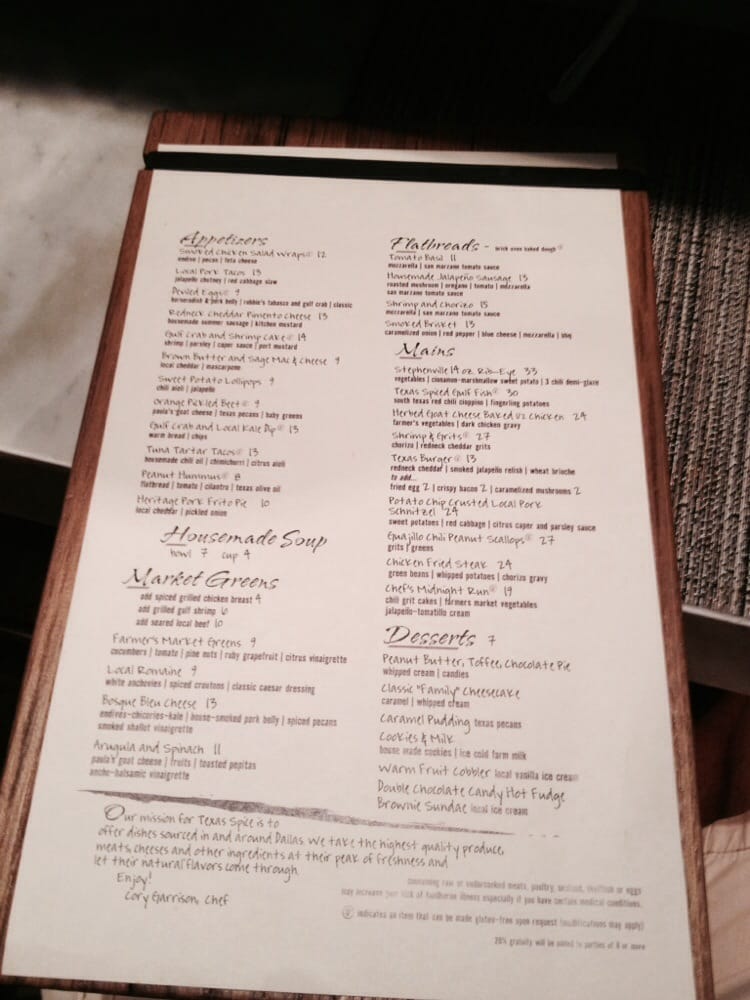 Appetizers
Smoked Chicken Salad Wraps 12
endive | pecan | feta cheese
Local Pork Tacos 13
jalapeño chutney | red cabbage slaw
Deviled Eggs 9
horseradish & pork belly | robbie's tabasco and gulf crab | classic
Redneck Cheddar Pimento Cheese 13
housemade summer sausage | kitchen mustard
Gulf Crab and Shrimp Cake 14
shrimp | parsley | caper sauce | port mustard
Brown Butter and Sage Mac & Cheese 9
local cheddar | mascarpone
Sweet Potato Lollipops 9
chili aioli | jalapeño
Orange Pickled Beet 9
paula's goat cheese | texas pecans | baby greens
Gulf Crab and Local Kale Dip 13
warm bread | chips
Tuna Tartar Tacos 13
housemade chili oil | chimichurri | citrus aioli
Peanut Hummus 8
flatbread | tomato | cilantro | texas olive oil
Heritage Pork Frito Pie 10
local cheddar | pickled onion
Housemade Soup
bowl 7 cup 4
Market Greens
add spiced grilled chicken breast 4
add grilled gulf shrimp 6
add seared local beef 10
Farmer's Market Greens 9
cucumbers | tomato | pine nuts | ruby grapefruit | citrus vinaigrette
Local Romaine 9
white anchovies | spiced croutons | classic caesar dressing
Bosque Bleu Cheese 13
endives-chicories-kale | house-smoked pork belly | spiced pecans
smoked shallot vinaigrette
Arugula and Spinach 11
paula's goat cheese | fruits | toasted pepitas
ancho-balsamic vinaigrette
Flatbreads - brick oven baked dough
Tomato Basil 11
mozzarella | san marzano tomato sauce
Housemade Jalapeño Sausage 13
roasted mushroom | oregano | tomato | mozzarella
san marzano tomato sauce
Shrimp and Chorizo 15
mozzarella | san marzano tomato sauce
Smoked Brisket 13
caramelized onion | red pepper | blue cheese | mozzarella | bbq
Mains
Stephenville 14 oz Rib-Eye 33
vegetables | cinnamon-marshmallow sweet potato | 3 chili demi-glaze
Texas Spiced Gulf Fish 30
south texas red chili cioppino | fingerling potatoes
Herbed Goat Cheese Baked 1/2 Chicken 24
farmer's vegetables | dark chicken gravy
Shrimp & Grits 27
chorizo | redneck cheddar grits
Texas Burger 13
redneck cheddar | smoked jalapeño relish | wheat brioche
to add...
fried egg 2 | crispy bacon 2 | caramelized mushrooms 2
Potato Chip Crusted Local Pork
Schnitzel 24
sweet potatoes | red cabbage | citrus caper and parsley sauce
Guajillo Chili Peanut Scallops 27
grits | greens
Chicken Fried Steak 24
green beans | whipped potatoes | chorizo gravy
Chef's Midnight Run 19
chili grit cakes | farmers market vegetables
jalapeño-tomatillo cream
Desserts 7
Peanut Butter, Toffee, Chocolate Pie
whipped cream | candies
Classic "Family" Cheesecake
caramel | whipped cream
Caramel Pudding texas pecans
Cookies & Milk
house made cookies | ice cold farm milk
Warm Fruit Cobbler local vanilla ice cream
Double Chocolate Candy Hot Fudge
Brownie Sundae local ice cream
Our mission for Texas Spice is to
offer dishes sourced in and around Dallas. We take the highest quality produce,
meats, cheeses and other ingredients at their peak of freshness and
let their natural flavors come through.
Enjoy!
Cory Garrison, Chef
consuming raw or undercooked meats, poultry, seafood, shellfish or eggs
may increase your risk of foodborne illness especially if you have certain medical conditions.
indicates an item that can be made gluten-free upon request (modifications may apply)
20% gratuity will be added to parties of 6 or more